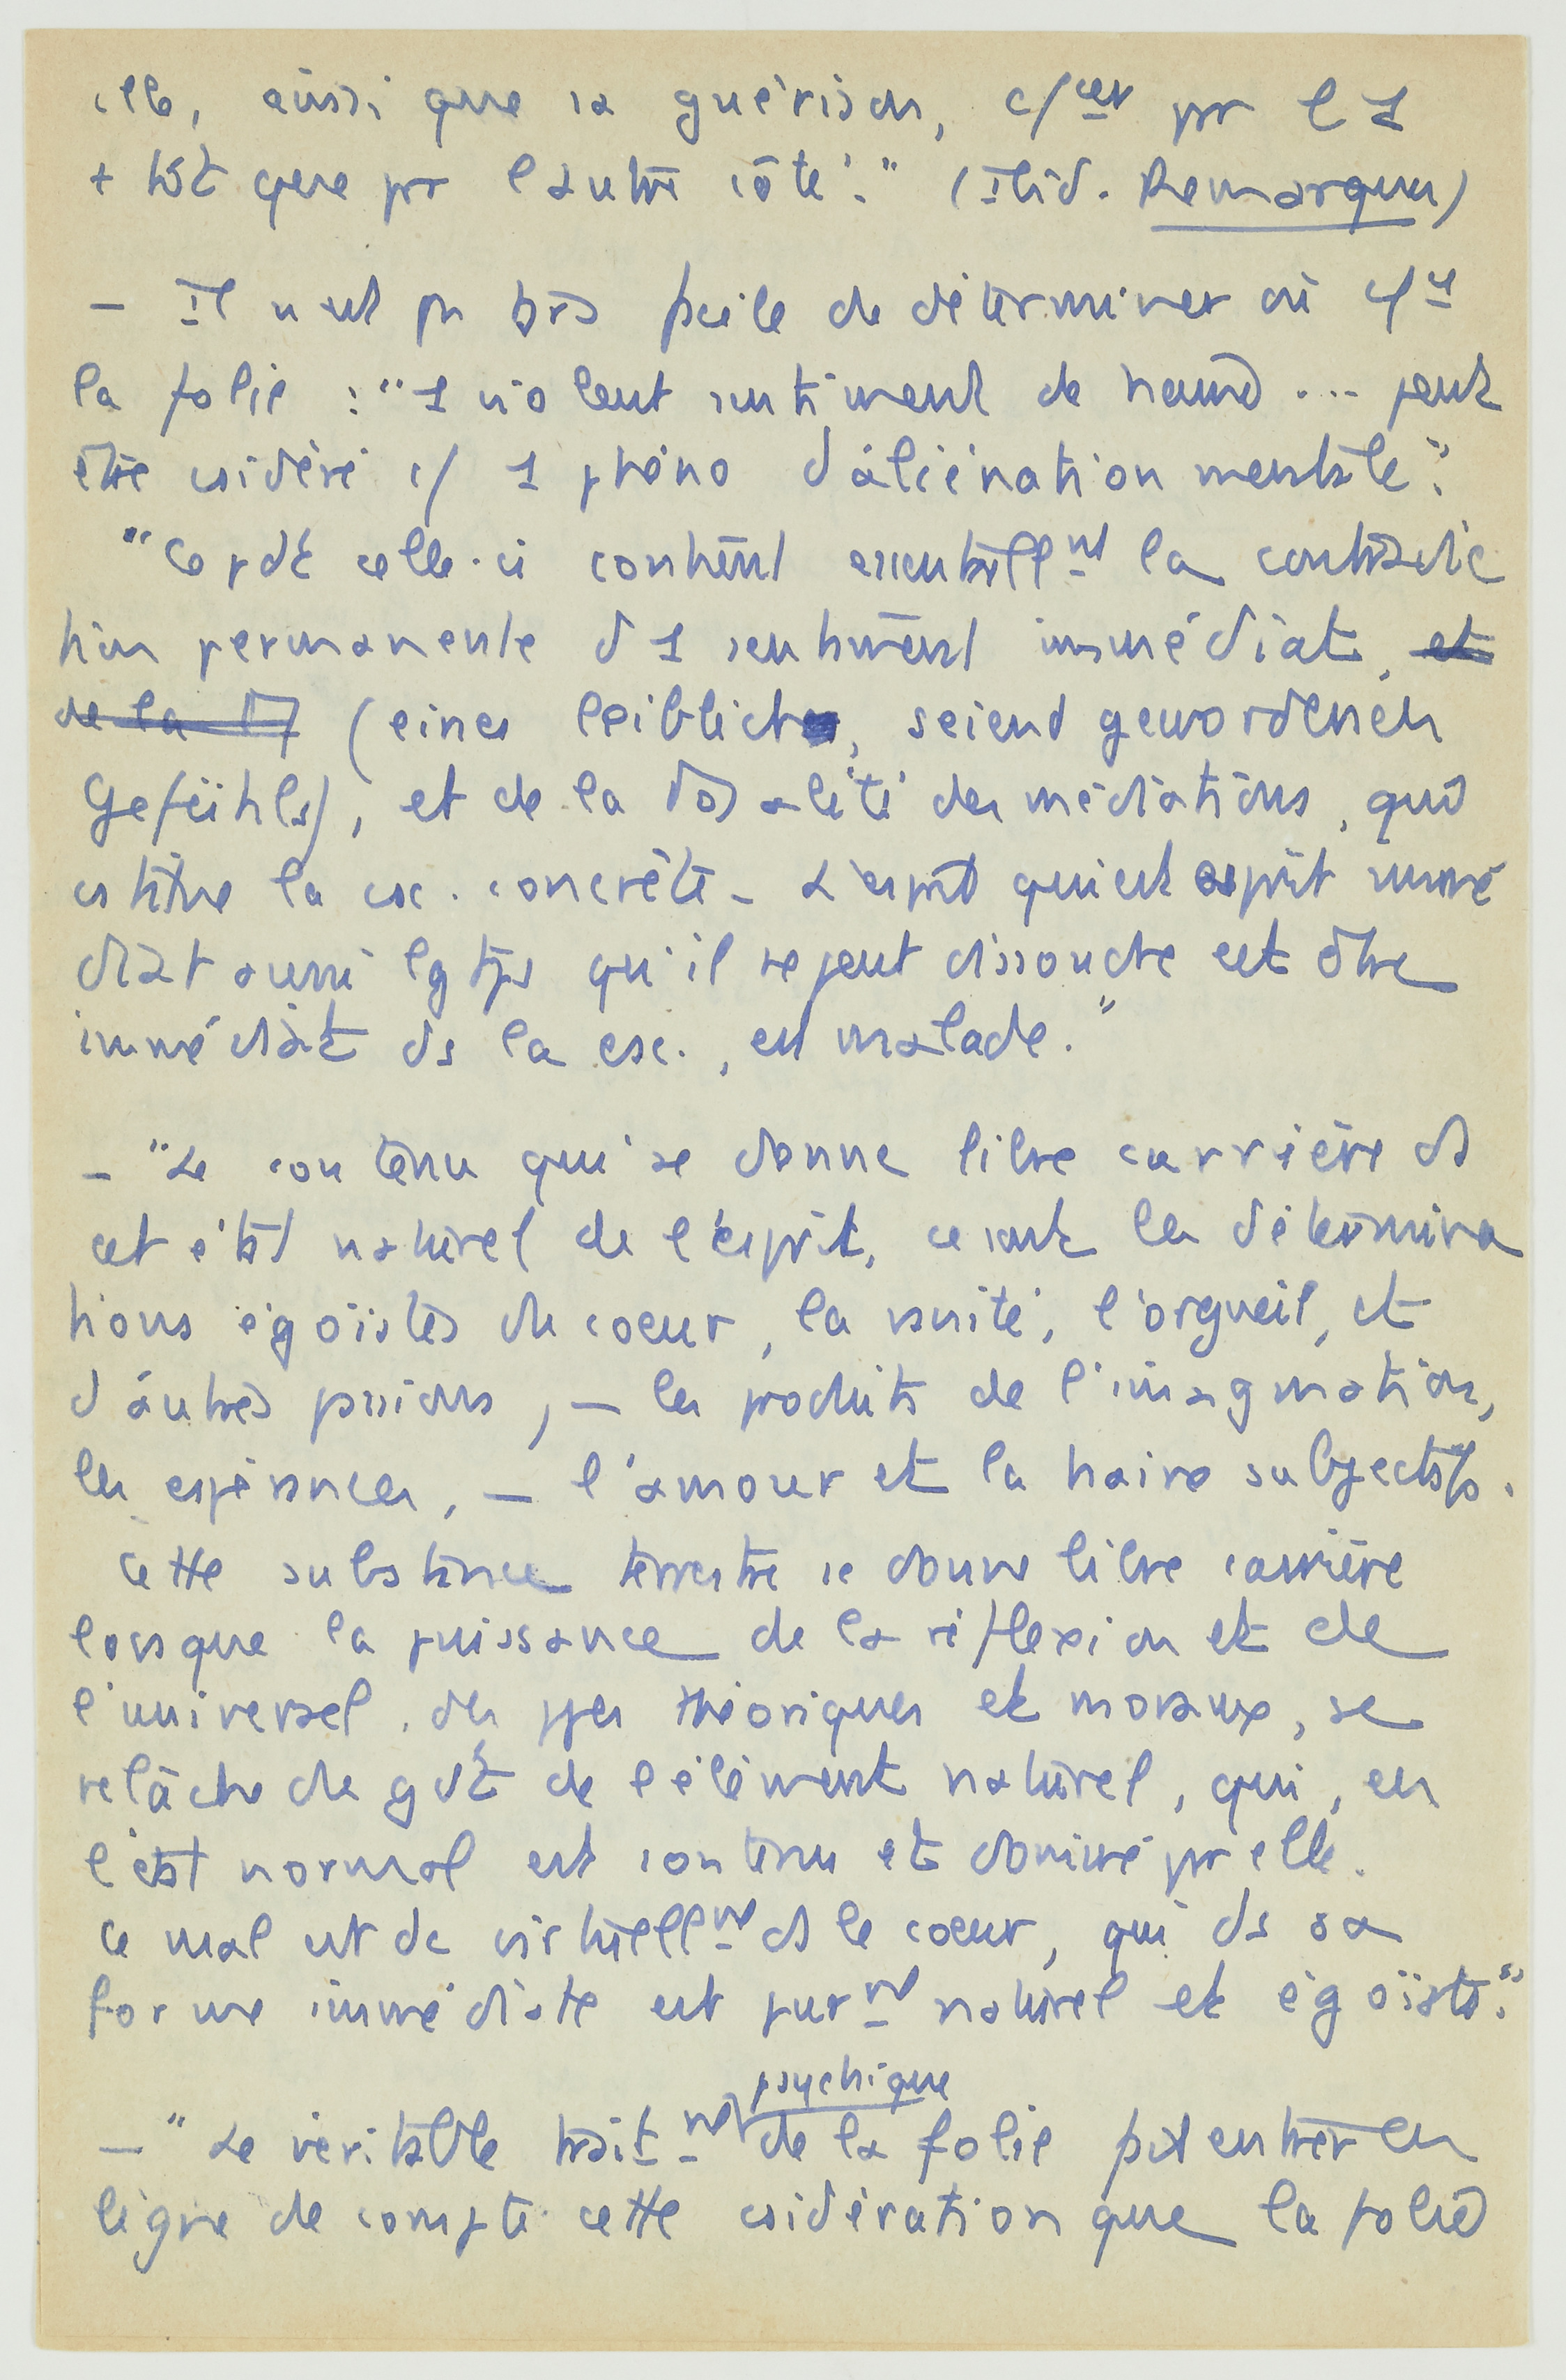 elle, aussi que sa guérison, c/cer pr l 1
+ tôt que pr l'autre côté." (Ibid. Remarques)
– Il n'est pas très facile de déterminer où c/ce
la folie : "1 violent sentiment de haine ... peut
être csidéré c/ 1 phéno d'aliénation mentale".
celle-ci contient essentiellnt la contradic
tion permanente d 1 sentiment immédiat, et
de la (eines leiblich, seiend gewordenen
Gefühls), et de la totalité des médiations, qui
cstitue la csc. concrète – L'esprit qui est esprit immé
diat aussi lgtps qu'il se peut dissoudre est être
immédiat ds la csc., est malade."
– "Le contenu qui se donne libre carrière ds
cet état naturel de l'esprit, ce sont les détermina
tions égoïstes du coeur, la vanité, l'orgueil, et
d'autres passions, – les produits de l'imagination,
les espérances, – l'amour et la haine subjectifs.
Cette substance terrestre se donne libre carrière
lorsque la puissance de la réflexion et de
l'universel, des ppes théoriques et moraux, se
relâche du gdt de l'élément naturel, qui, en
l'état normal est contenu et dominé pr elle.
Ce mal est dc virtuellnt ds le coeur, qui ds sa
forme immédiate est purnt naturel et égoïste."
psychique
– "Le véritable traitnt de la folie fait entrer en
ligne de compte cette csidération que la folie